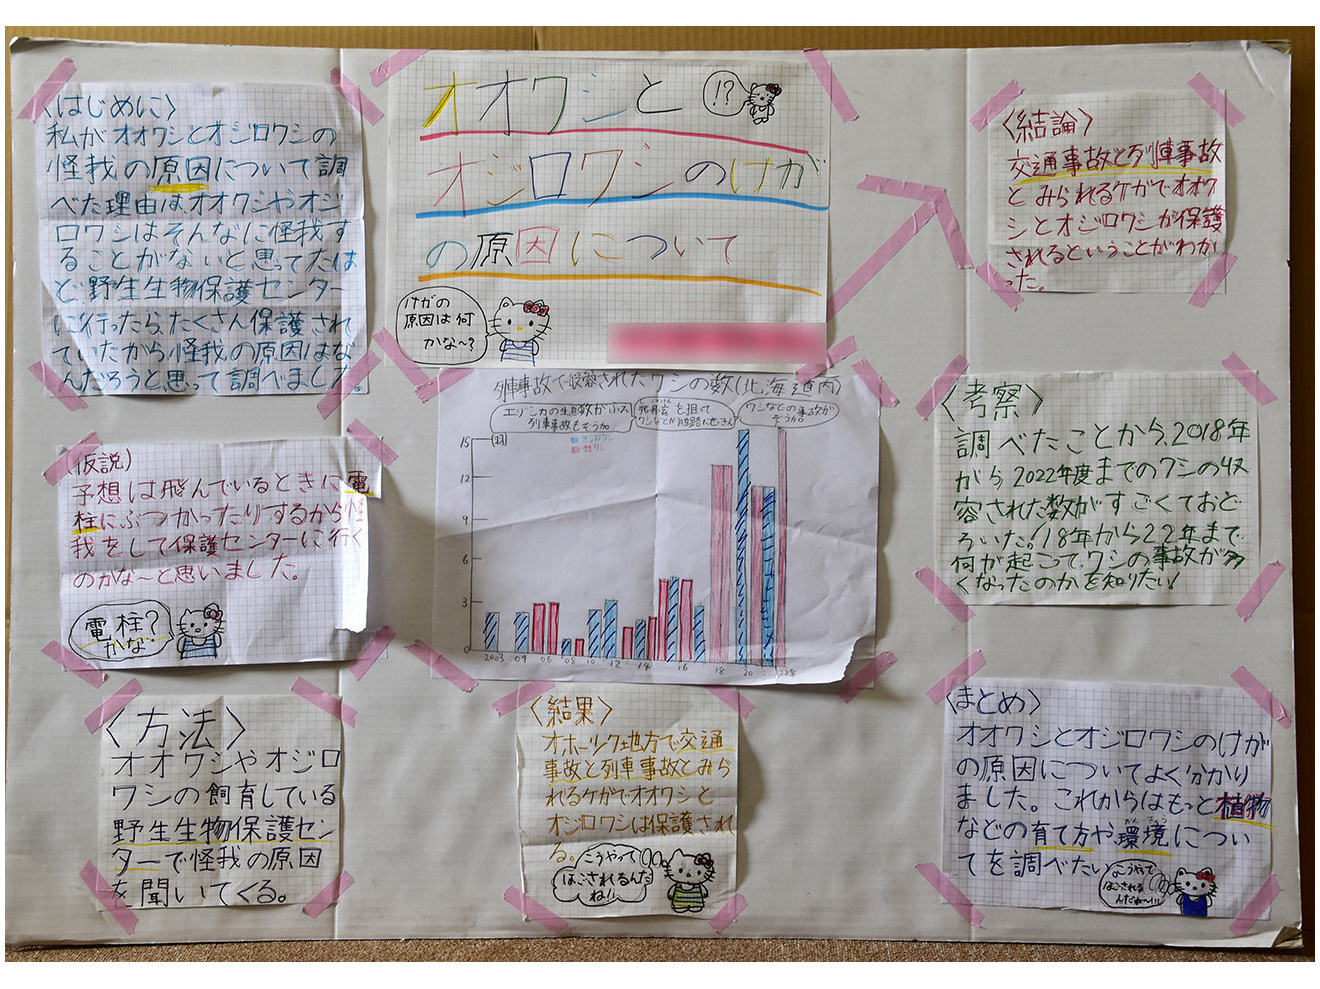 オオワシと
オジロワシのけが
の原因について
!?
けがの
原因は何
かな〜?
〈はじめに〉
私がオオワシとオジロワシの
怪我の原因について調
べた理由は、オオワシやオジ
ロワシはそんなに怪我す
ることがないと思ってたけ
ど野生生物保護センター
に行ったら、たくさん保護され
ていたから怪我の原因はな
んだろうと思って調べました。
〈仮説〉
予想は飛んでいるときに電
柱にぶつかったりするから怪
我をして保護センターに行く
のかな〜と思いました。
電柱?
かな・・
〈方法〉
オオワシやオジロ
ワシの飼育している
野生生物保護セン
ターで怪我の原因
を聞いてくる。
列車事故で収容されたワシの数(北海道内)
エゾシカの生息数がふえ
列車事故もぞうか
を狙って
ワシなどが線路に
ワシなどの事故が
ぞうか
オジロワシ
オオワシ
15
12
9
6
3
0
2003 04 06 08 10 12 14 16 18 20 22年
〈結果〉
オホーツク地方で交通
事故と列車事故とみら
れるケガでオオワシと
オジロワシは保護され
る。
こうやって
ほごされるんだ
ね!!
〈結論〉
交通事故と列車事故
とみられるケガでオオワ
シとオジロワシが保護
されるということがわか
った。
〈考察〉
調べたことから、2018年
から2022年度までのワシの収
容された数がすごくておど
ろいた。18年から22年まで
何が起こって、ワシの事故が多
くなったのかを知りたい!
〈まとめ〉
オオワシとオジロワシのけが
の原因についてよく分かり
ました。これからはもっと植物
などの育て方や環境につい
てを調べたい
こうやって
ほごされる
んだね〜!!